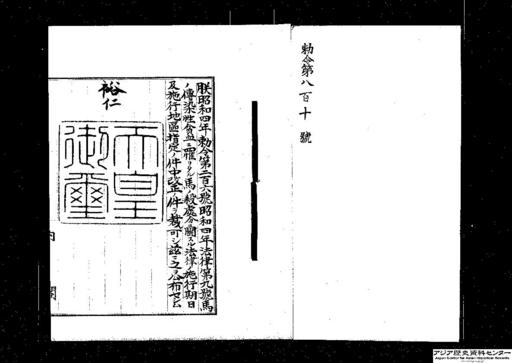 勅令第八百十號
朕昭和四年勅令第二百六號昭和四年法律第九號馬
ノ傳染性貧血ニ罹リタル馬ノ殺處分ニ關スル法律ノ施行期日
及施行地區指定ノ件中改正ノ件ヲ裁可シ茲ニ之ヲ公布セシム
裕仁
天皇
御璽
内閣
アジア歴史資料センター
Japan Center for Asian Historical Records